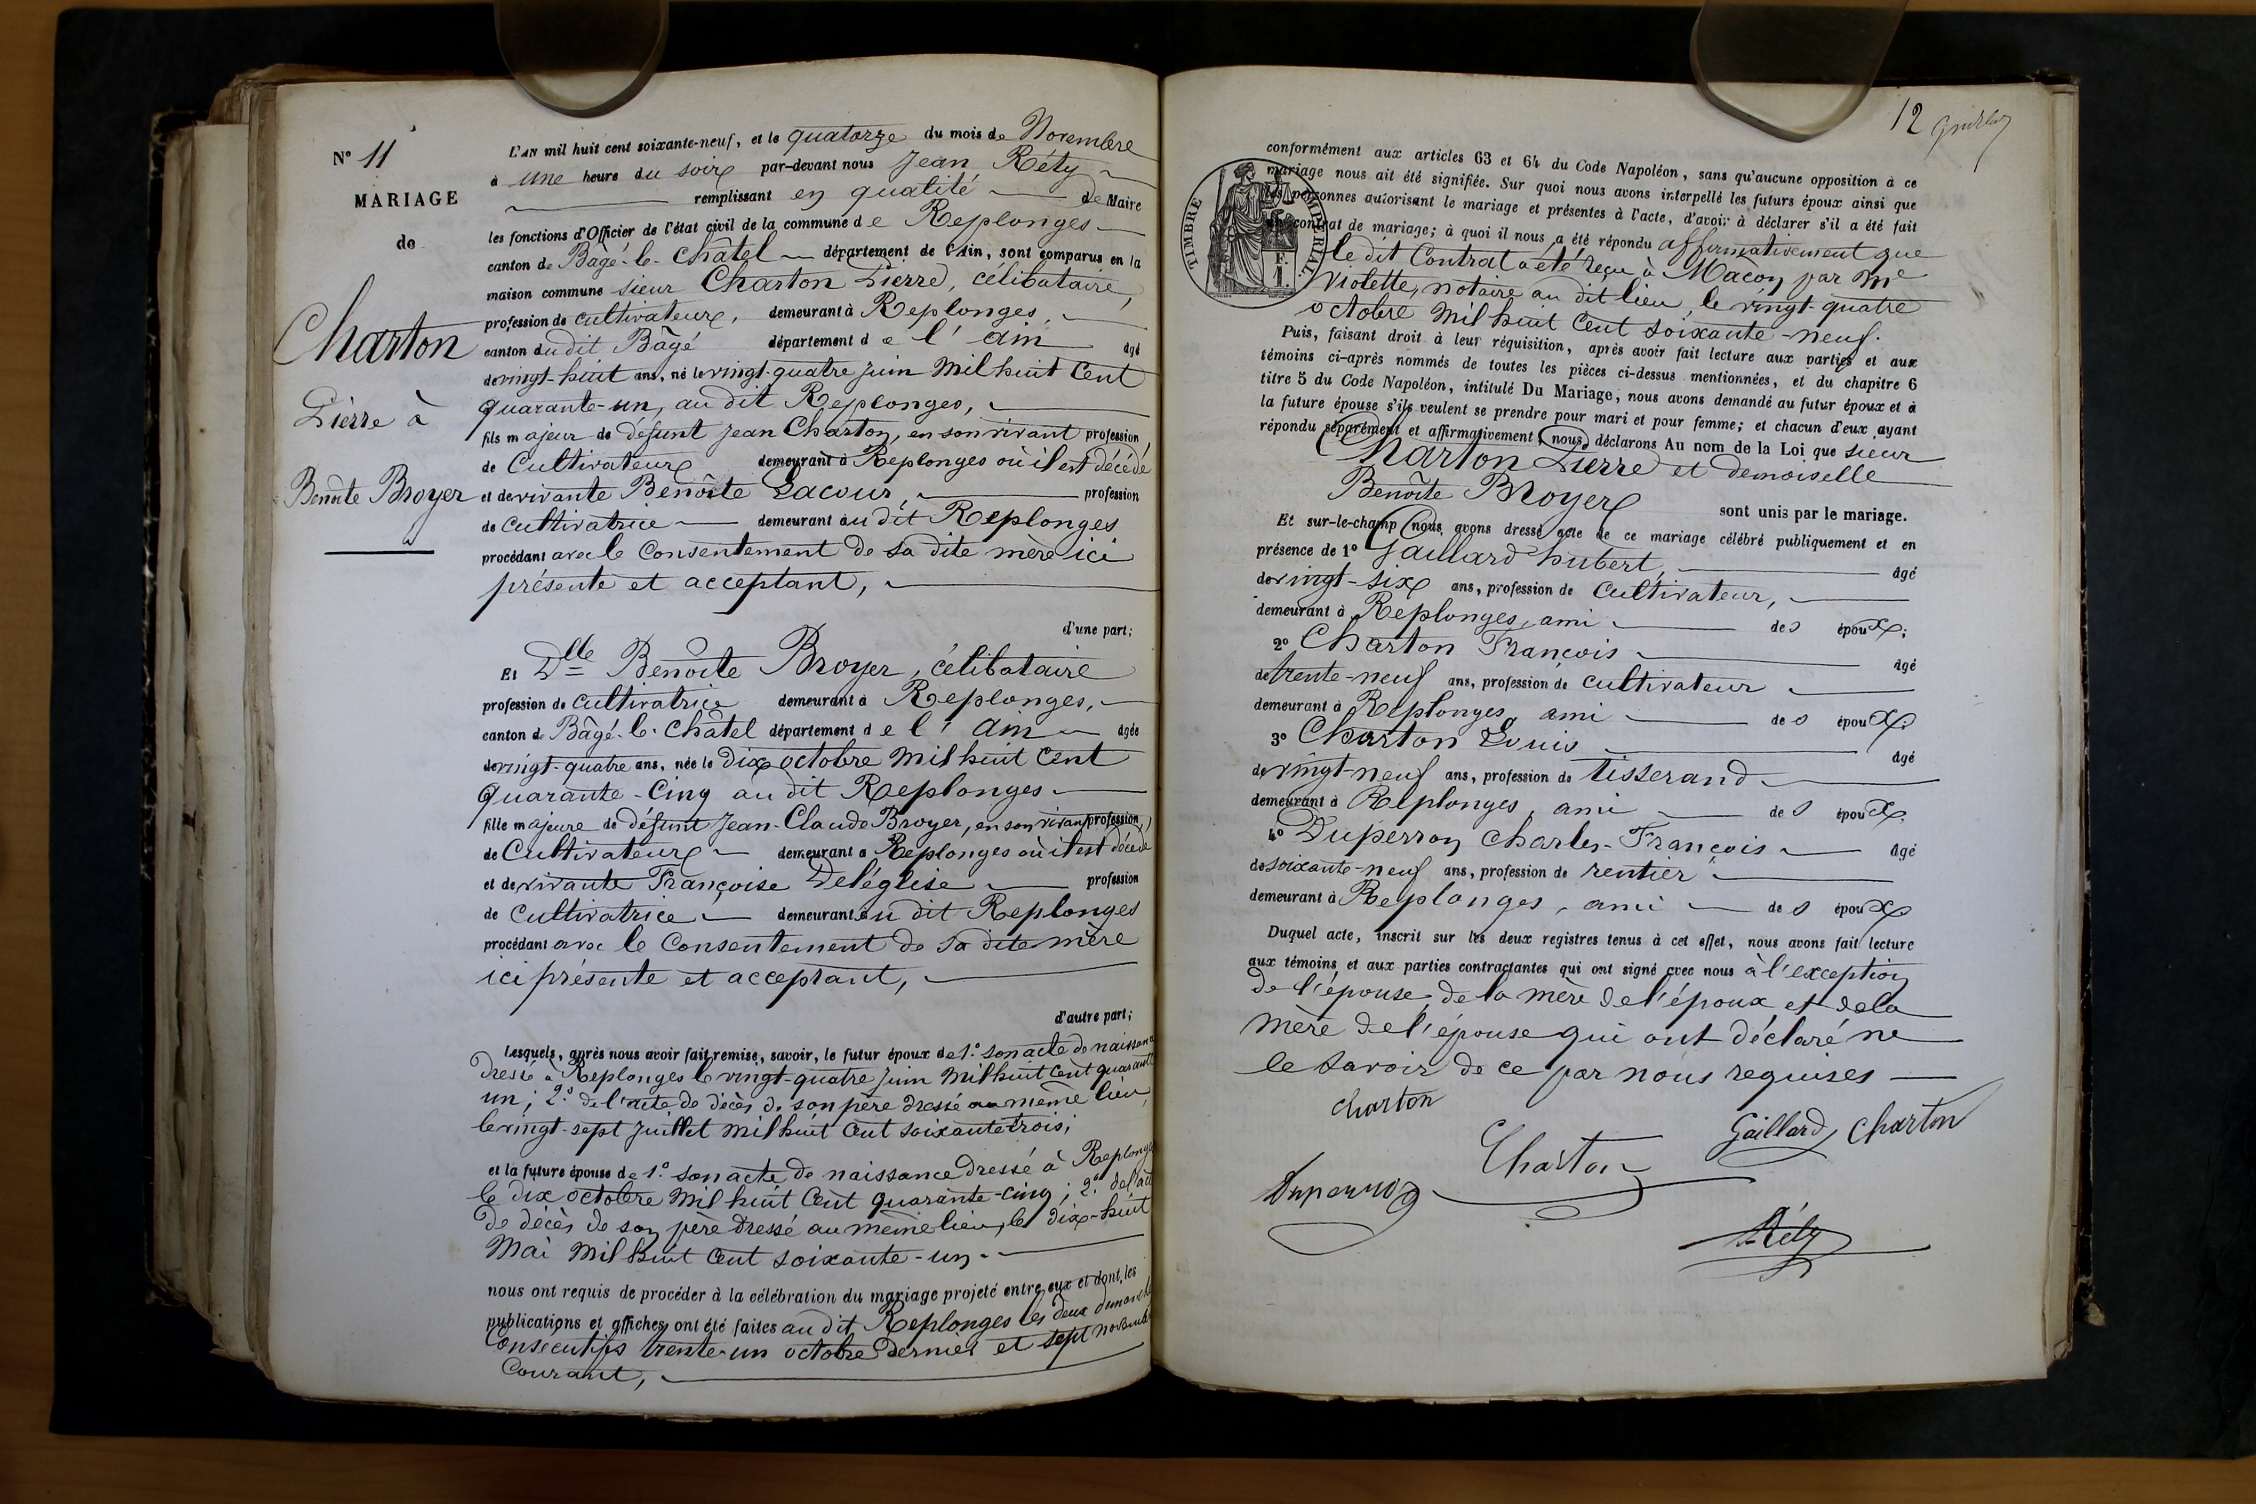 N° 11
MARIAGE
de
Charton
Pierre à
Benoîte Broyer
L'AN mil huit cent soixante-neuf, et le quatorze du mois de Novembre
à une heure du soir par-devant nous Jean Réty
remplissant en qualité de Maire
les fonctions d'Officier de l'état civil de la commune de Replonges
canton de Bâgé-le-Châtel département de l'Ain, sont comparus en la
maison commune sieur Charton Pierre, célibataire,
profession de cultivateur, demeurant à Replonges,
canton du dit Bâgé département de l'ain âgé
de vingt-huit ans, né le vingt-quatre juin mil huit cent
quarante-un, au dit Replonges,
fils majeur de défunt Jean Charton, en son vivant profession
de Cultivateur demeurant à Replonges où il est décédé
et de vivante Benoîte Lacour, profession
de cultivatrice demeurant au dit Replonges
procédant avec le consentement de sa dite mère ici
présente et acceptant,
d'une part;
Et Dlle Benoîte Broyer, célibataire
profession de cultivatrice demeurant à Replonges,
canton de Bâgé-le-Châtel département de l'ain âgée
de vingt-quatre ans, née le dix octobre mil huit cent
quarante-cinq au dit Replonges
fille majeure de défunt Jean-Claude Broyer, en son vivant profession
de Cultivateur demeurant à Replonges où il est décédé
et de vivante Françoise Deléglise profession
de cultivatrice demeurant au dit Replonges
procédant avec le consentement de sa dite mère
ici présente et acceptant,
d'autre part;
Lesquels, après nous avoir fait remise, savoir, le futur époux de 1.° son acte de naissance
dressé à Replonges le vingt-quatre juin mil huit cent quarante
un; 2.° de l'acte de décès de son père dressé au même lieu,
le vingt-sept juillet mil huit cent soixante trois;
et la future épouse de 1.° son acte de naissance dressé à Replonges
le dix octobre mil huit cent quarante-cinq; 2.° de l'acte
de décès de son père dressé au même lieu, le dix-huit
Mai mil huit cent soixante-un.
nous ont requis de procéder à la célébration du mariage projeté entre eux et dont les
publications et affiches ont été faites au dit Replonges les deux dimanches
consécutifs trente-un octobre dernier et sept novembre
courant,
12
conformément aux articles 63 et 64 du Code Napoléon, sans qu'aucune opposition à ce
mariage nous ait été signifiée. Sur quoi nous avons interpellé les futurs époux ainsi que
les personnes autorisant le mariage et présentes à l'acte, d'avoir à déclarer s'il a été fait
un contrat de mariage; à quoi il nous a été répondu affirmativement que
le dit Contrat a été reçu à Mâcon par Me
Violette, notaire au dit lieu, le vingt-quatre
octobre mil huit cent soixante-neuf.
TIMBRE IMPÉRIAL.
F.
1.
Puis, faisant droit à leur réquisition, après avoir fait lecture aux parties et aux
témoins ci-après nommés de toutes les pièces ci-dessus mentionnées, et du chapitre 6
titre 5 du Code Napoléon, intitulé Du Mariage, nous avons demandé au futur époux et à
la future épouse s'ils veulent se prendre pour mari et pour femme; et chacun d'eux ayant
répondu séparément et affirmativement, nous déclarons Au nom de la Loi que sieur
Charton Pierre et demoiselle
Benoîte Broyer
sont unis par le mariage.
Et sur-le-champ nous avons dressé acte de ce mariage célébré publiquement et en
présence de 1° Gaillard hubert, âgé
de vingt-six ans, profession de cultivateur,
demeurant à Replonges, ami des époux;
2° Charton François âgé
de trente-neuf ans, profession de cultivateur
demeurant à Replonges, ami des époux;
3° Charton Louis âgé
de vingt-neuf ans, profession de tisserand
demeurant à Replonges, ami des époux
4° Duperron Charles-François âgé
de soixante-neuf ans, profession de rentier
demeurant à Replonges, ami des époux
Duquel acte, inscrit sur les deux registres tenus à cet effet, nous avons fait lecture
aux témoins et aux parties contractantes qui ont signé avec nous à l'exception
de l'épouse, de la mère de l'époux et de la
mère de l'épouse qui ont déclaré ne
le savoir de ce par nous requises
charton
Gaillard Charton
Charton
Duperron
Réty